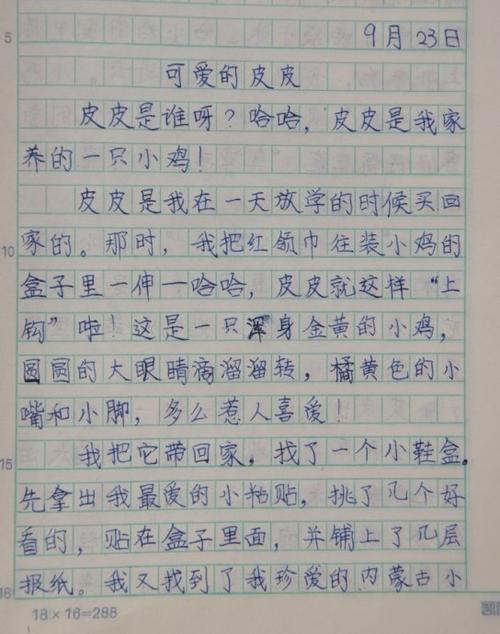 5
9月23日
可爱的皮皮
皮皮是谁呀？哈哈，皮皮是我家
养的一只小鸡！
皮皮是我在一天放学的时候买回
10 家的。那时，我把红领巾往装小鸡的
盒子里一伸——哈哈，皮皮就这样“上
钩”啦！这是一只浑身金黄的小鸡，
圆圆的大眼睛滴溜溜转，橘黄色的小
嘴和小脚，多么惹人喜爱！
15 我把它带回家。找了一个小鞋盒。
先拿出我最爱的小粘贴，挑了几个好
看的，贴在盒子里面，并铺上了几层
18 报纸。我又找到了我珍爱的内蒙古小
18×16=288